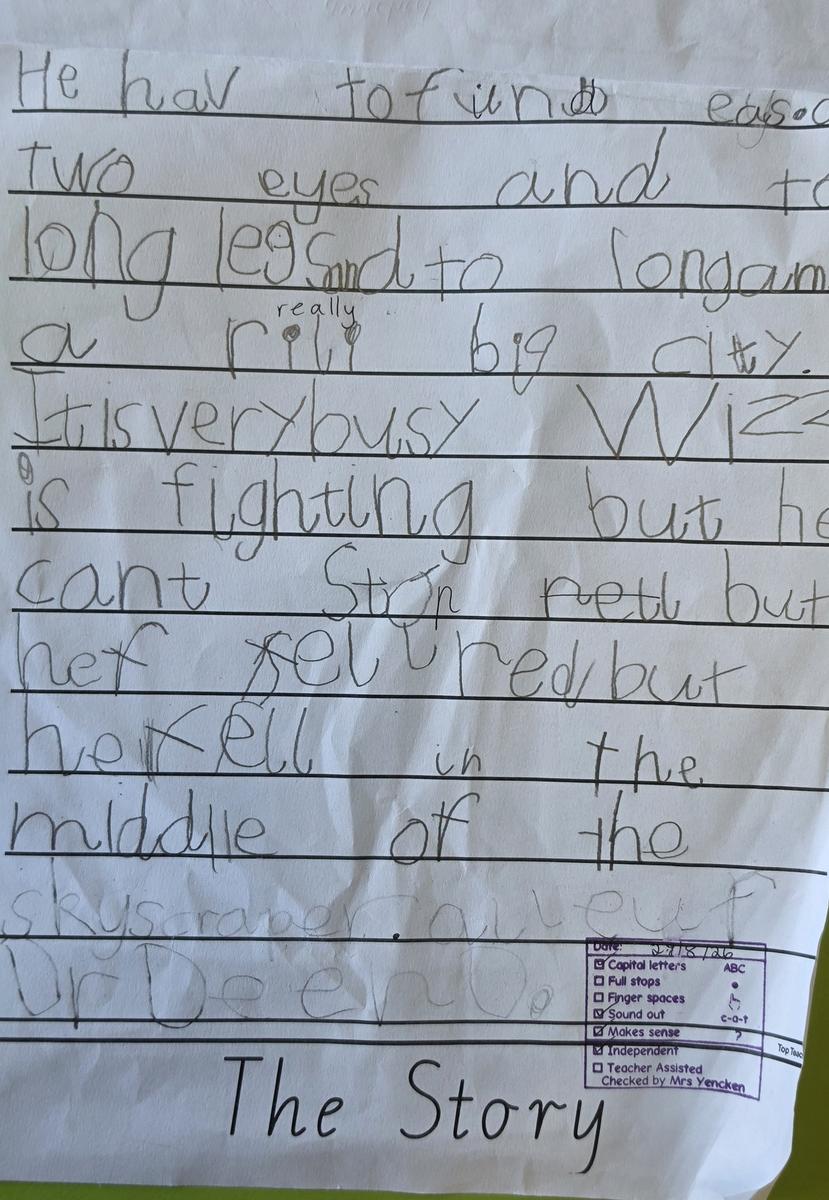 He hav to fund eas.
two eyes and to
long legs and to long am
really
a rili big city.
It is very busy Wizz
is fighting but he
cant Stop rell but
hef fell red but
he fell in the
middle of the
skyscraper.
Dr Deeno.
Date: 27/8/26
Capital letters ABC
Full stops
Finger spaces
Sound out c-a-t
Makes sense ?
Independent
Teacher Assisted
Checked by Mrs Yencken
The Story